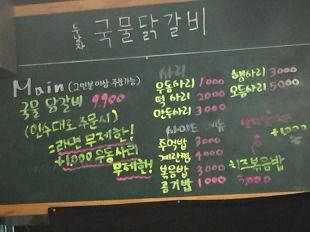 두남자 국물닭갈비
Main (2인분 이상 주문가능)
국물 닭갈비 9,900
(인수대로 주문시)
=라면 무제한!
+1,000 우동사리
무제한!
사리
우동사리 1000
떡 사리 2000
만두사리 3000
햄사리 3000
모듬사리 5000
사이드 메뉴
주먹밥 3000
계란찜 3000
볶음밥 3000
공기밥 1000
+1,000
치즈볶음밥